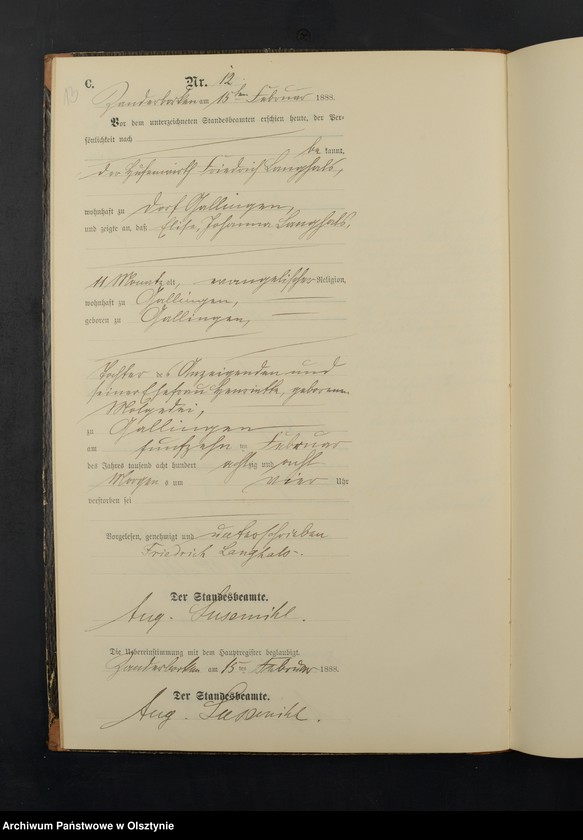 C.
Nr. 12.
13
am 15ten Februar 1888.
Vor dem unterzeichneten Standesbeamten erschien heute, der Per-
sönlichkeit nach
be kannt,
der Hufenwirth Friedrich Langhals,
wohnhaft zu Dorf Gallingen,
und zeigte an, daß Elise, Johanna Langhals,
11 Monate alt, evangelischer Religion,
wohnhaft zu Gallingen,
geboren zu Gallingen,
Tochter des Anzeigenden und
seiner Ehefrau Henriette, geborenen
zu Gallingen
am fünfzehn ten Februar
des Jahres tausend acht hundert achtzig und acht
Morgens um vier Uhr
verstorben sei
Vorgelesen, genehmigt und unterschrieben
Friedrich Langhals.
Der Standesbeamte.
Aug. Susemihl.
Die Uebereinstimmung mit dem Hauptregister beglaubigt.
am 15ten Februar 1888.
Der Standesbeamte.
Aug. Susemihl.
Archiwum Państwowe w Olsztynie